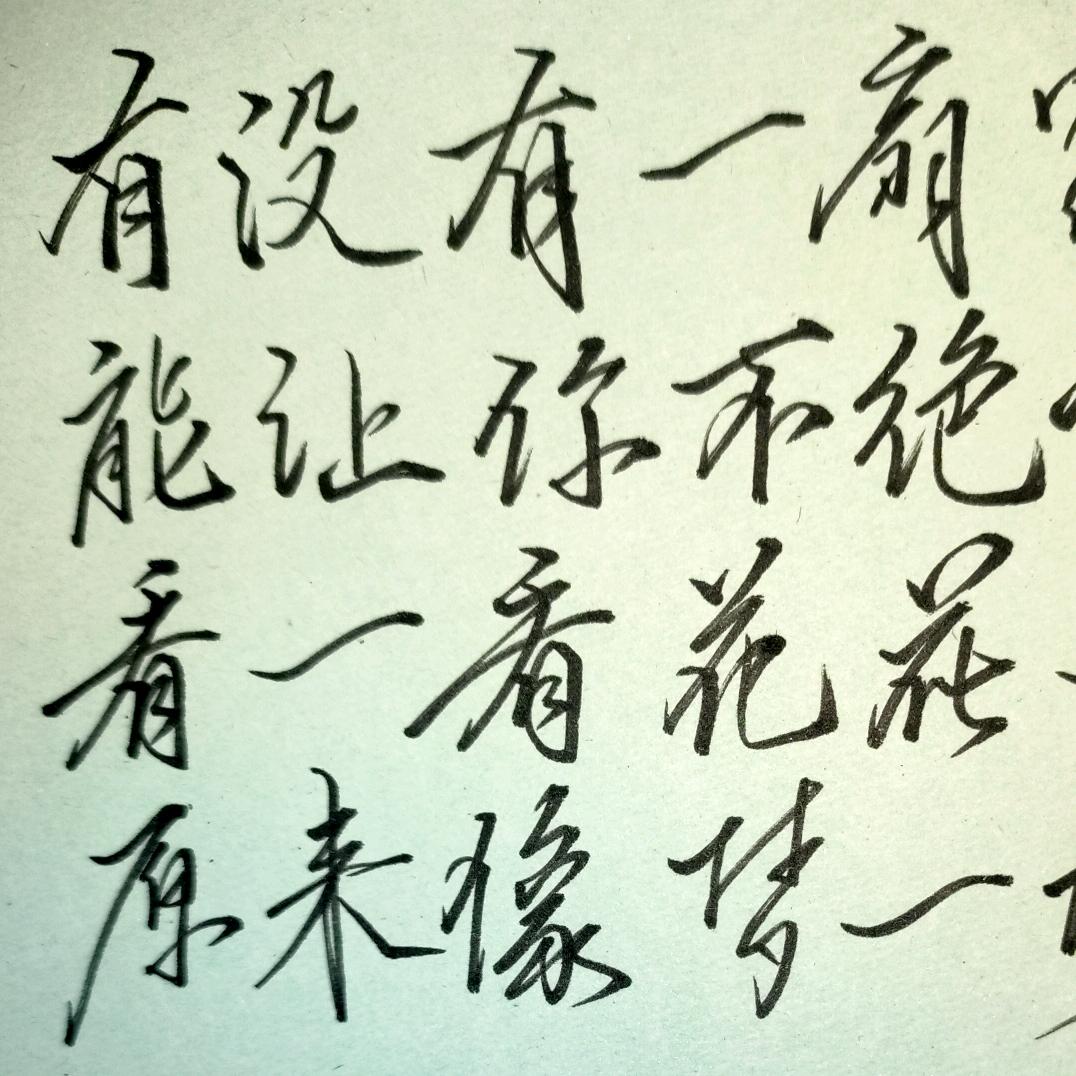 有没有一扇窗
能让你不绝
看一看花花
原来像梦一